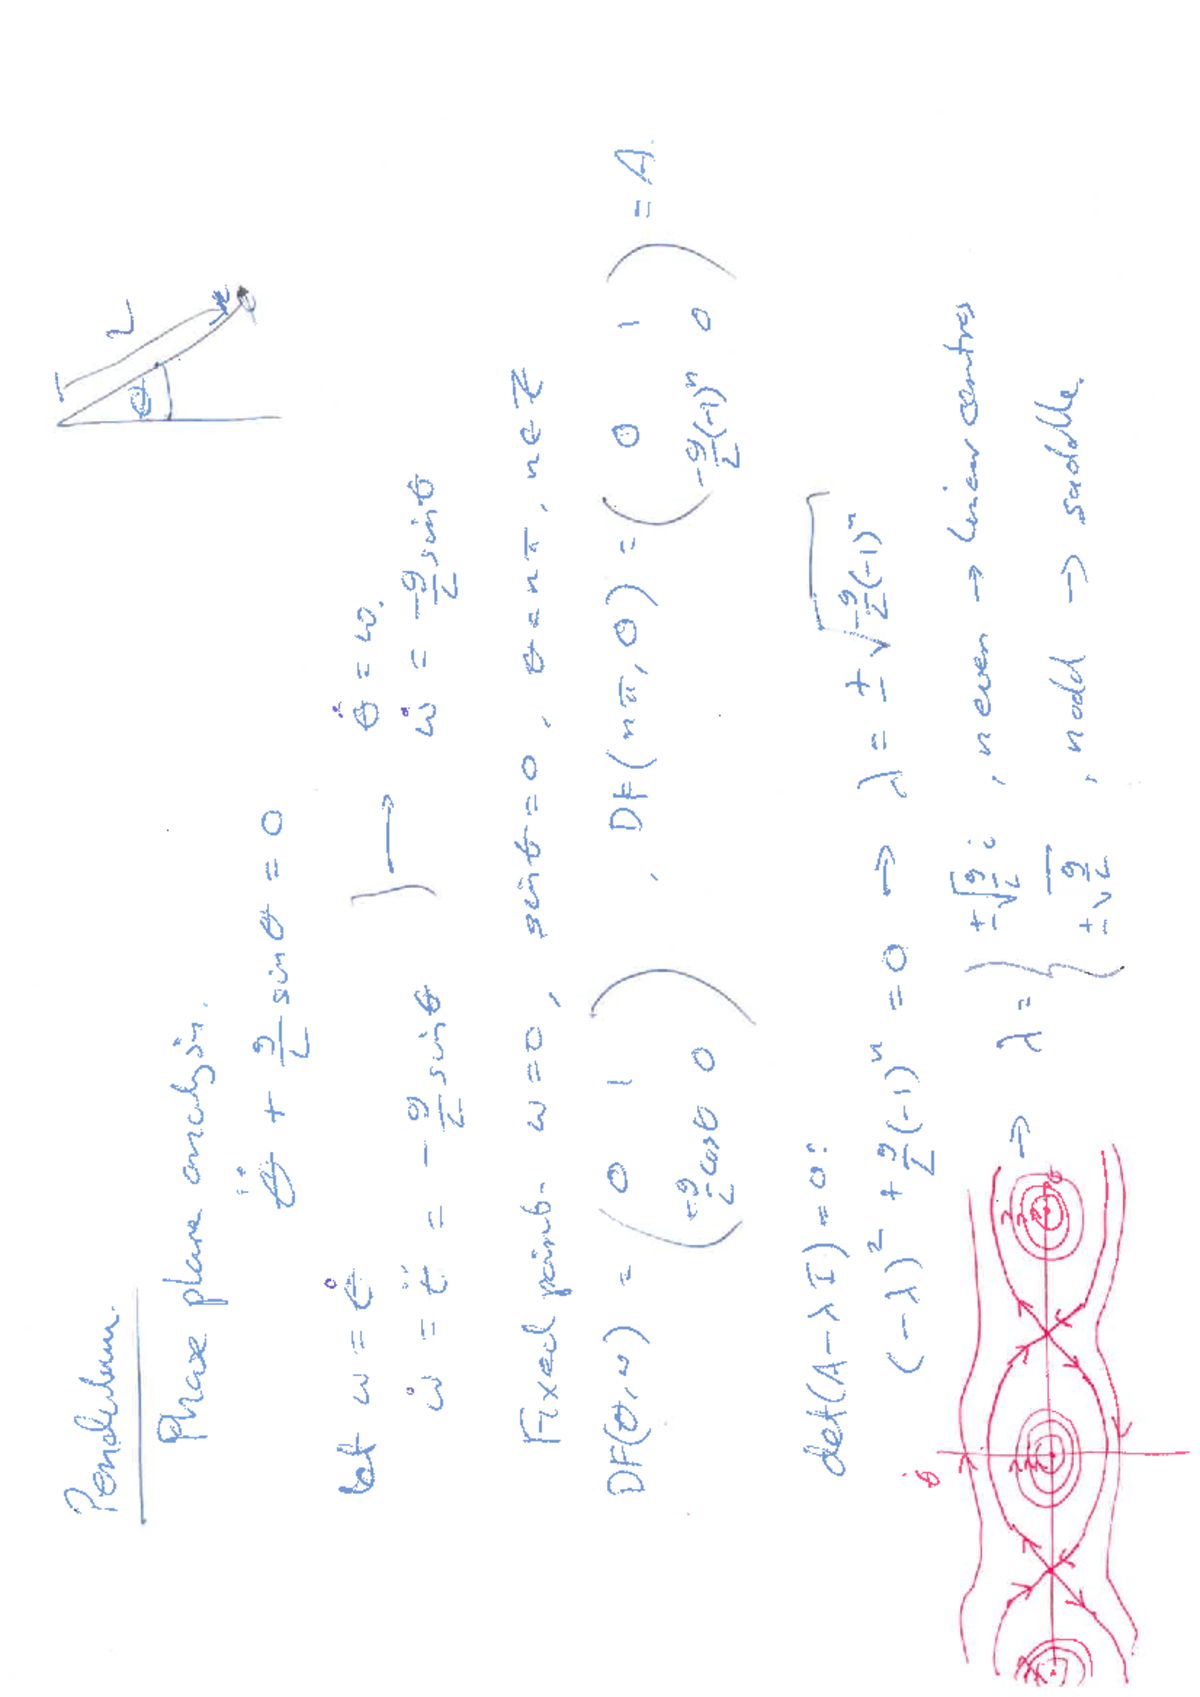 Pendulum.
L
θ
Phase plane analysis.
θ̈ + g/L sinθ = 0
let ω = θ̇
ω̇ = θ̈ = -g/L sinθ } → θ̇ = ω.
ω̇ = -g/L sinθ
Fixed points. ω=0, sinθ=0, θ=nπ, n∈Z
DF(θ,ω) = ( 0 1 ; -g/L cosθ 0 ), DF(nπ,0) = ( 0 1 ; -g/L(-1)ⁿ 0 ) = A.
det(A-λI)=0:
(-λ)² + g/L(-1)ⁿ = 0 → λ = ±√(-g/L(-1)ⁿ)
→ λ = { ±√(g/L) i, n even → linear centres
±√(g/L), n odd → saddle.
θ̇
θ